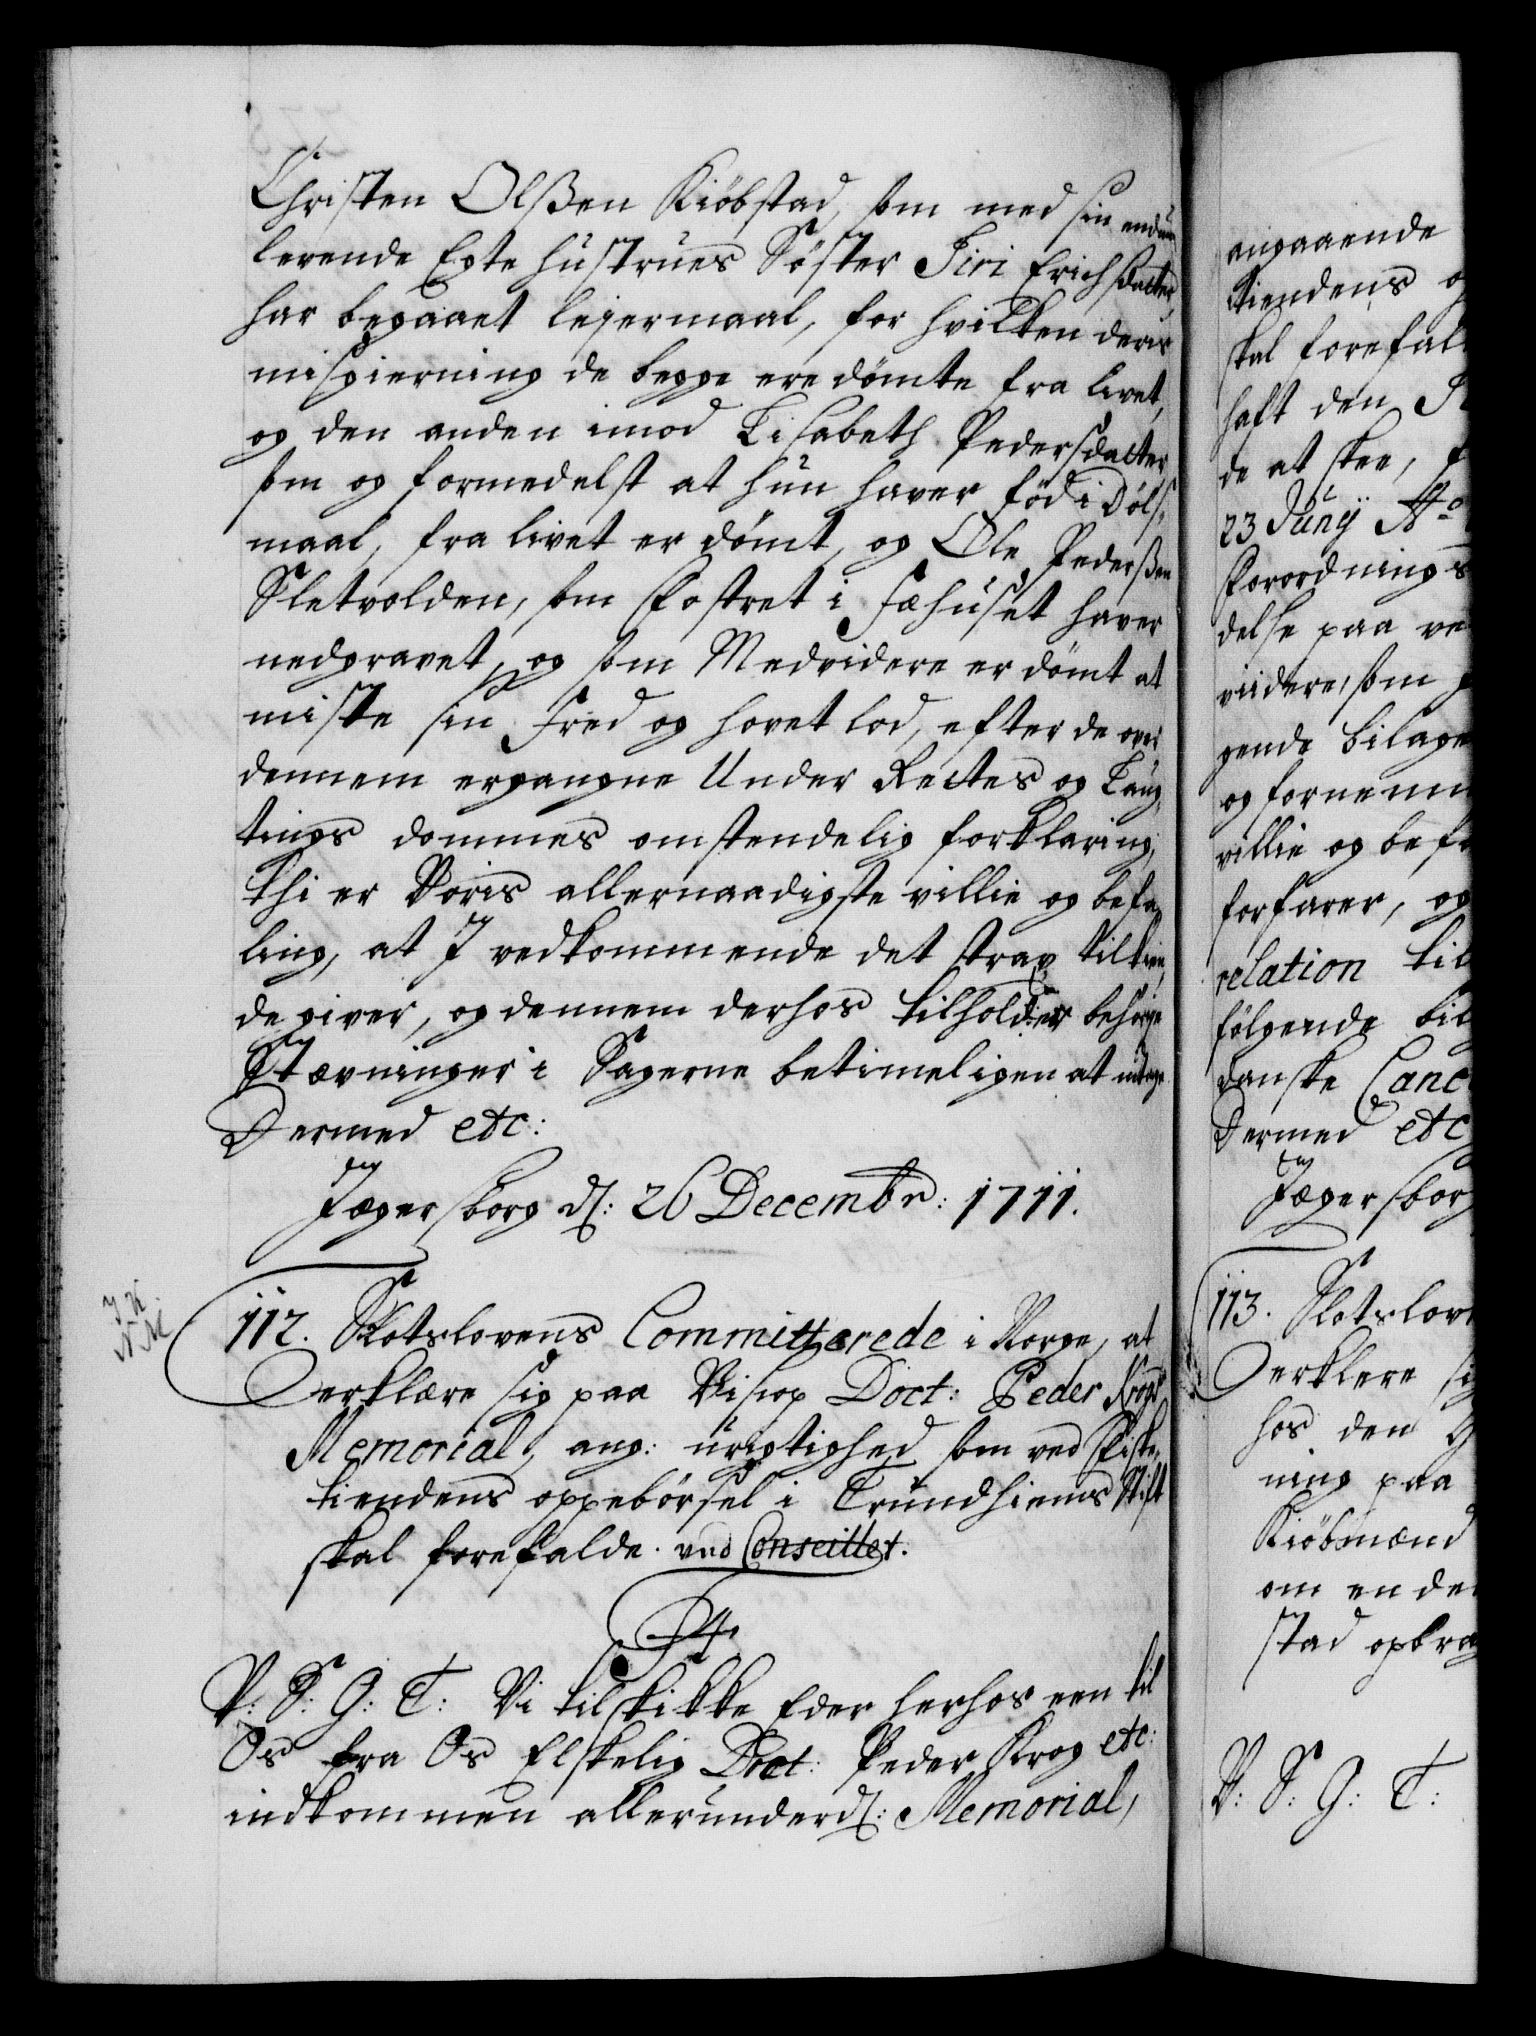 Christen Olßen Kiöbstad, som med sin endnu
levende Egte Hustrues Söster Siri Erichsdatter,
har begaaet lejermaal, for hvilken deris
misgierning de begge ere dömte fra livet,
og den anden imod Lisabeth Pedersdatter
som og formedelst at hun haver föd i Döls,
maal, fra livet er dömt, og Ole Pederßen
Sletvolden, som Fostret i Fæhuset haver
nedgravet, og som Medvidere er dömt at
miste sin Fred og hovet lod, efter de over
dennem ergangne Under Rettes og Laug,
tings dommes omstendelig forklaring,
thi er Voris allernaadigste villie og befa,
ling, at I vedkommende det strax tilkien,
de giver, og dennem derhos tilholder behörige
Stævninger i Sagerne betimeligen at udtage
Dermed etc:
Jægersborg d: 26 Decembr: 1711.
112. Slotslovens Committerede i Norge, at
erklære sig paa Bisop Doct: Peder Krogs
Memorial, ang: urigtighed som ved Fiske,
tiendens oppebörsel i Trundhiems Stift
skal forefalde. ved Conseillet.
F4.
V: S: G: T: Vi tilskikke Eder herhos een til
Os fra Os Elskelig Doct: Peder Krog etc:
indkommen allerunderd: Memorial,
angaaende
tiendens
skal forefal
haft den
de at skee,
23 Junÿ Aº
Forordnings
delse paa
viidere, som
gende bilage
og fornemm
villie og befa
forfarer, og
relation til
fölgende bil
danske Canc
Dermed etc
Jægersborg
113. Slotslov
erklere sig
hos den
ning paa
Kiöbmænd
om en de
stad opkra
V: S: G: T: